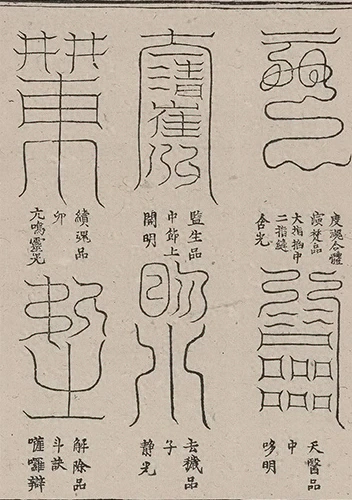 度魂合體
演梵品
大指掐中
二指縫
含光
監生品
中節上
開明
續魂品
卯
亢鳴靈光
天醫品
中
哆明
去穢品
子
靜光
解除品
斗訣